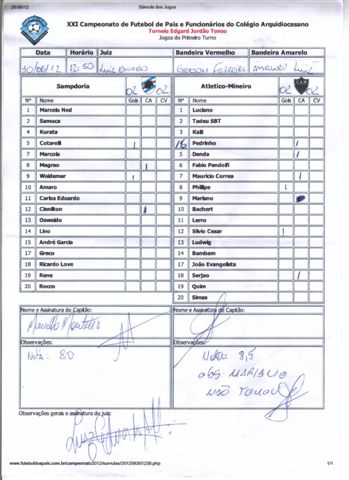 28/06/12 Súmula dos Jogos
XXI Campeonato de Futebol de Pais e Funcionários do Colégio Arquidiocesano
Torneio Edgard Jordão Tonso
Jogos do Primeiro Turno
Data Horário Juiz Bandeira Vermelho Bandeira Amarelo
30/06/12 12:50 Luiz Eduardo Gerson Ferreira Amauri Luiz
Sampdoria 02 Atletico-Mineiro 02
Nº Nome Gols CA CV Nº Nome Gols CA CV
1 Marcelo Ned 1 Luciano
2 Samuca 2 Tadeu SBT
4 Kurata 3 Kalil
5 Cotarelli Pedrinho
7 Marcola 5 Denda
8 Magrao 6 Fabio Pandolfi
9 Waldemar 7 Mauricio Correa
10 Amaro 8 Phillipe
11 Carlos Eduardo 9 Mariano
12 Clenilton 10 Bachert
13 Oswaldo 11 Lerro
14 Lino 12 Silvio Cesar
15 André Garcia 13 Ludwig
17 Greco 14 Bambam
18 Ricardo Love 17 João Evangelista
19 Rene 18 Serjao
20 Rocco 19 Quim
20 Simas
Nome e Assinatura do Capitão: Nome e Assinatura do Capitão:
Observações: Observações:
Nota: 8.0 Nota: 8,5
OBS MARIANO
NÃO
Observações gerais e assinatura do juiz:
www.futeboldospais.com.br/campeonato2012/sumulas/201206301230.php 1/1